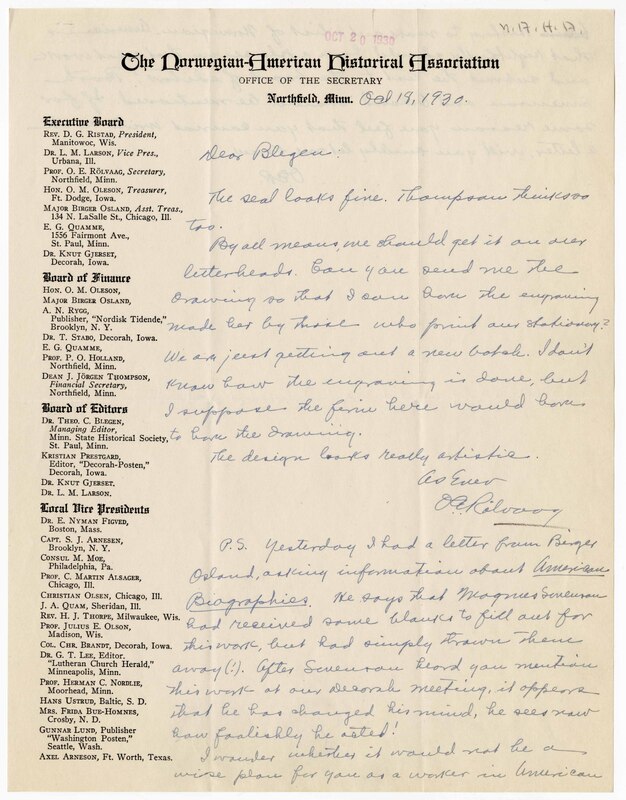 N.A.H.A.
OCT 20 1930
The Norwegian-American Historical Association
OFFICE OF THE SECRETARY
Northfield, Minn. Oct 18, 1930.
Executive Board
REV. D. G. RISTAD, President,
Manitowoc, Wis.
DR. L. M. LARSON, Vice Pres.,
Urbana, Ill.
PROF. O. E. RÖLVAAG, Secretary,
Northfield, Minn.
HON. O. M. OLESON, Treasurer,
Ft. Dodge, Iowa.
MAJOR BIRGER OSLAND, Asst. Treas.,
134 N. LaSalle St., Chicago, Ill.
E. G. QUAMME,
1556 Fairmont Ave.,
St. Paul, Minn.
DR. KNUT GJERSET,
Decorah, Iowa.
Board of Finance
HON. O. M. OLESON,
MAJOR BIRGER OSLAND,
A. N. RYGG,
Publisher, "Nordisk Tidende,"
Brooklyn, N. Y.
DR. T. STABO, Decorah, Iowa.
E. G. QUAMME,
PROF. P. O. HOLLAND,
Northfield, Minn.
DEAN J. JÖRGEN THOMPSON,
Financial Secretary,
Northfield, Minn.
Board of Editors
DR. THEO. C. BLEGEN,
Managing Editor,
Minn. State Historical Society,
St. Paul, Minn.
KRISTIAN PRESTGARD,
Editor, "Decorah-Posten,"
Decorah, Iowa.
DR. KNUT GJERSET.
DR. L. M. LARSON.
Local Vice Presidents
DR. E. NYMAN FIGVED,
Boston, Mass.
CAPT. S. J. ARNESEN,
Brooklyn, N. Y.
CONSUL M. MOE,
Philadelphia, Pa.
PROF. C. MARTIN ALSAGER,
Chicago, Ill.
CHRISTIAN OLSEN, Chicago, Ill.
J. A. QUAM, Sheridan, Ill.
REV. H. J. THORPE, Milwaukee, Wis.
PROF. JULIUS E. OLSON,
Madison, Wis.
COL. CHR. BRANDT, Decorah, Iowa.
DR. G. T. LEE, Editor,
"Lutheran Church Herald,"
Minneapolis, Minn.
PROF. HERMAN C. NORDLIE,
Moorhead, Minn.
HANS USTRUD, Baltic, S. D.
MRS. FRIDA BUE-HOMNES,
Crosby, N. D.
GUNNAR LUND, Publisher
"Washington Posten,"
Seattle, Wash.
AXEL ARNESON, Ft. Worth, Texas.
Dear Blegen:
The seal looks fine. Thompson thinks so
too.
By all means, we should get it on our
letterheads. Can you send me the
drawing so that I can have the engraving
made here by those who print our stationery?
We are just getting out a new batch. I don't
know how the engraving is done, but
I suppose the firm here would have
to have the drawing.
The design looks really artistic.
As Ever
OE Rölvaag
P.S. Yesterday I had a letter from Birger
Osland, asking information about American
Biographies. He says that Magnus Swenson
had received some blanks to fill out for
this work, but had simply thrown them
away(!). After Swenson heard you mention
this work at our Decorah meeting, it appears
that he has changed his mind, he sees now
how foolishly he acted!
I wonder whether it would not be a
wise plan for you as a worker in American